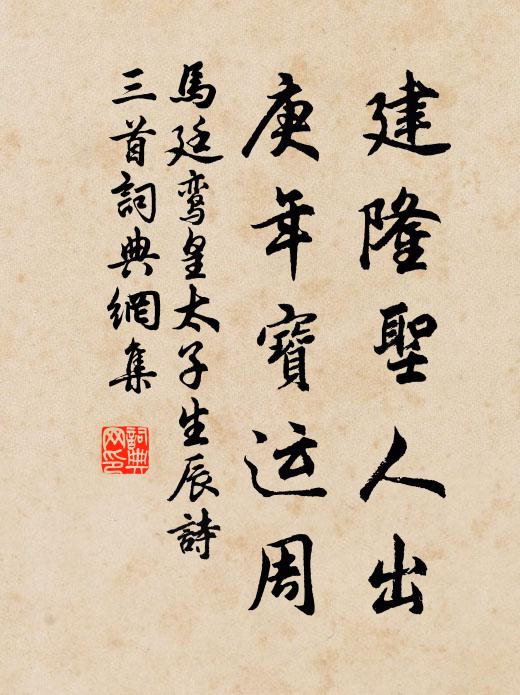 建隆聖人出
庚年寶运周
馬廷鸾皇太子生辰詩
三首詞典網集
詞典网印